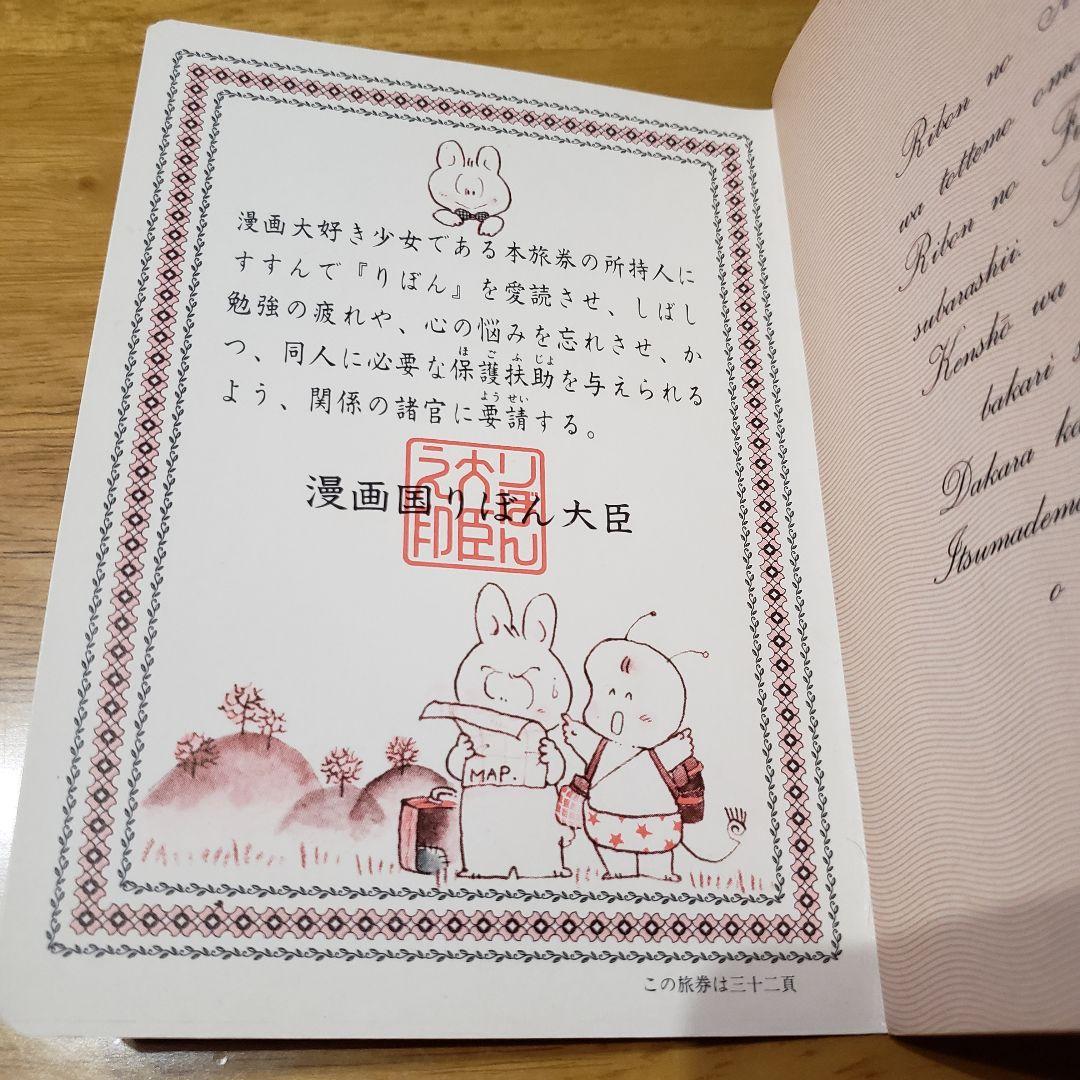 漫画大好き少女である本旅券の所持人に
すすんで『りぼん』を愛読させ、しばし
勉強の疲れや、心の悩みを忘れさせ、か
つ、同人に必要な保護扶助を与えられる
ほごふじょ
よう、関係の諸官に要請する。
ようせい
漫画国りぼん大臣
りぼん
大臣
之印
MAP.
この旅券は三十二頁
Ribon no
wa tottemo omo
Ribon no Fu
subarashii. S
Kenshō wa
bakari s
Dakara ko
Itsumademo
o